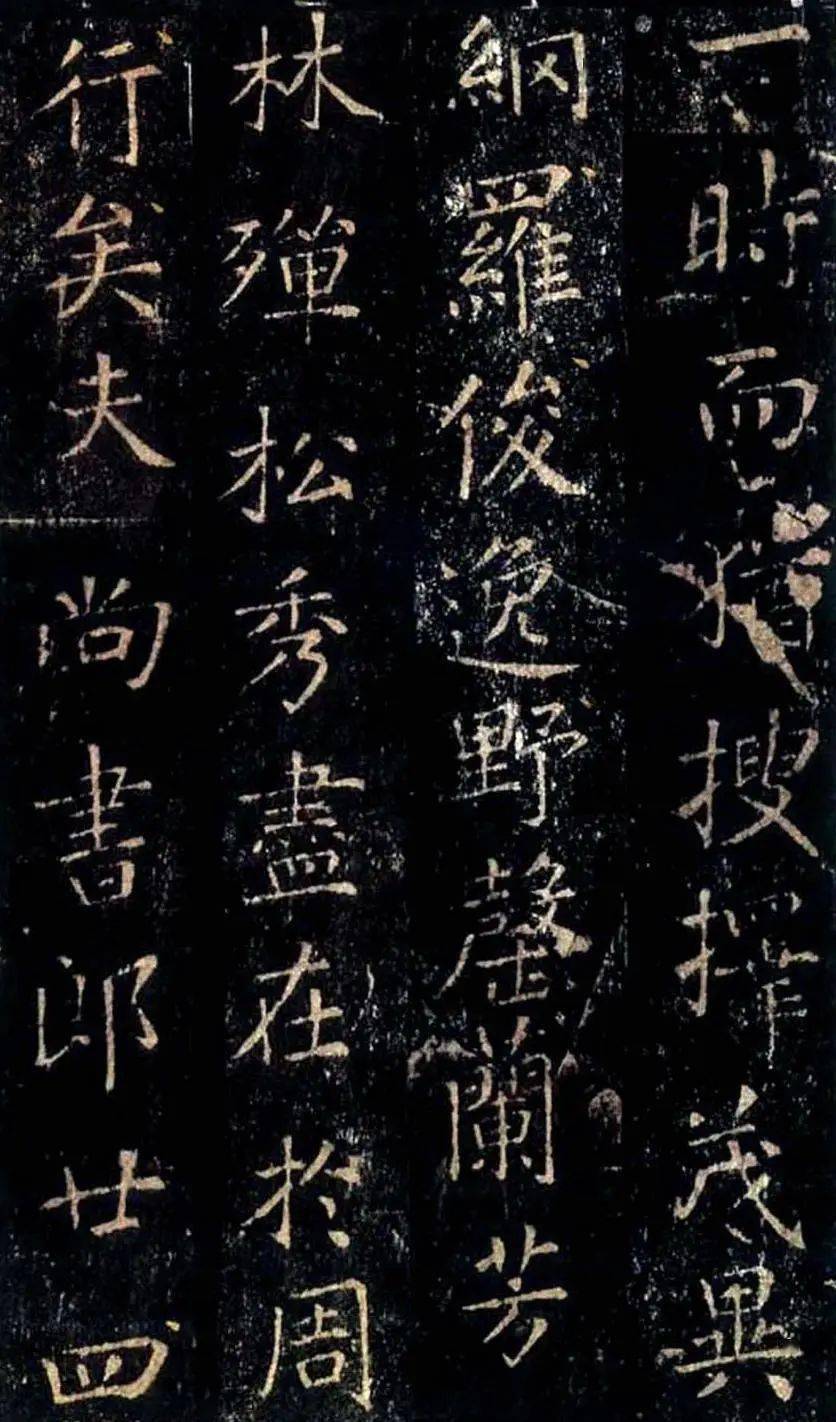 時而猶搜擇茂異
網羅俊逸野罄蘭芳
林殫松秀盡在於周
行矣夫尚書郎廿四